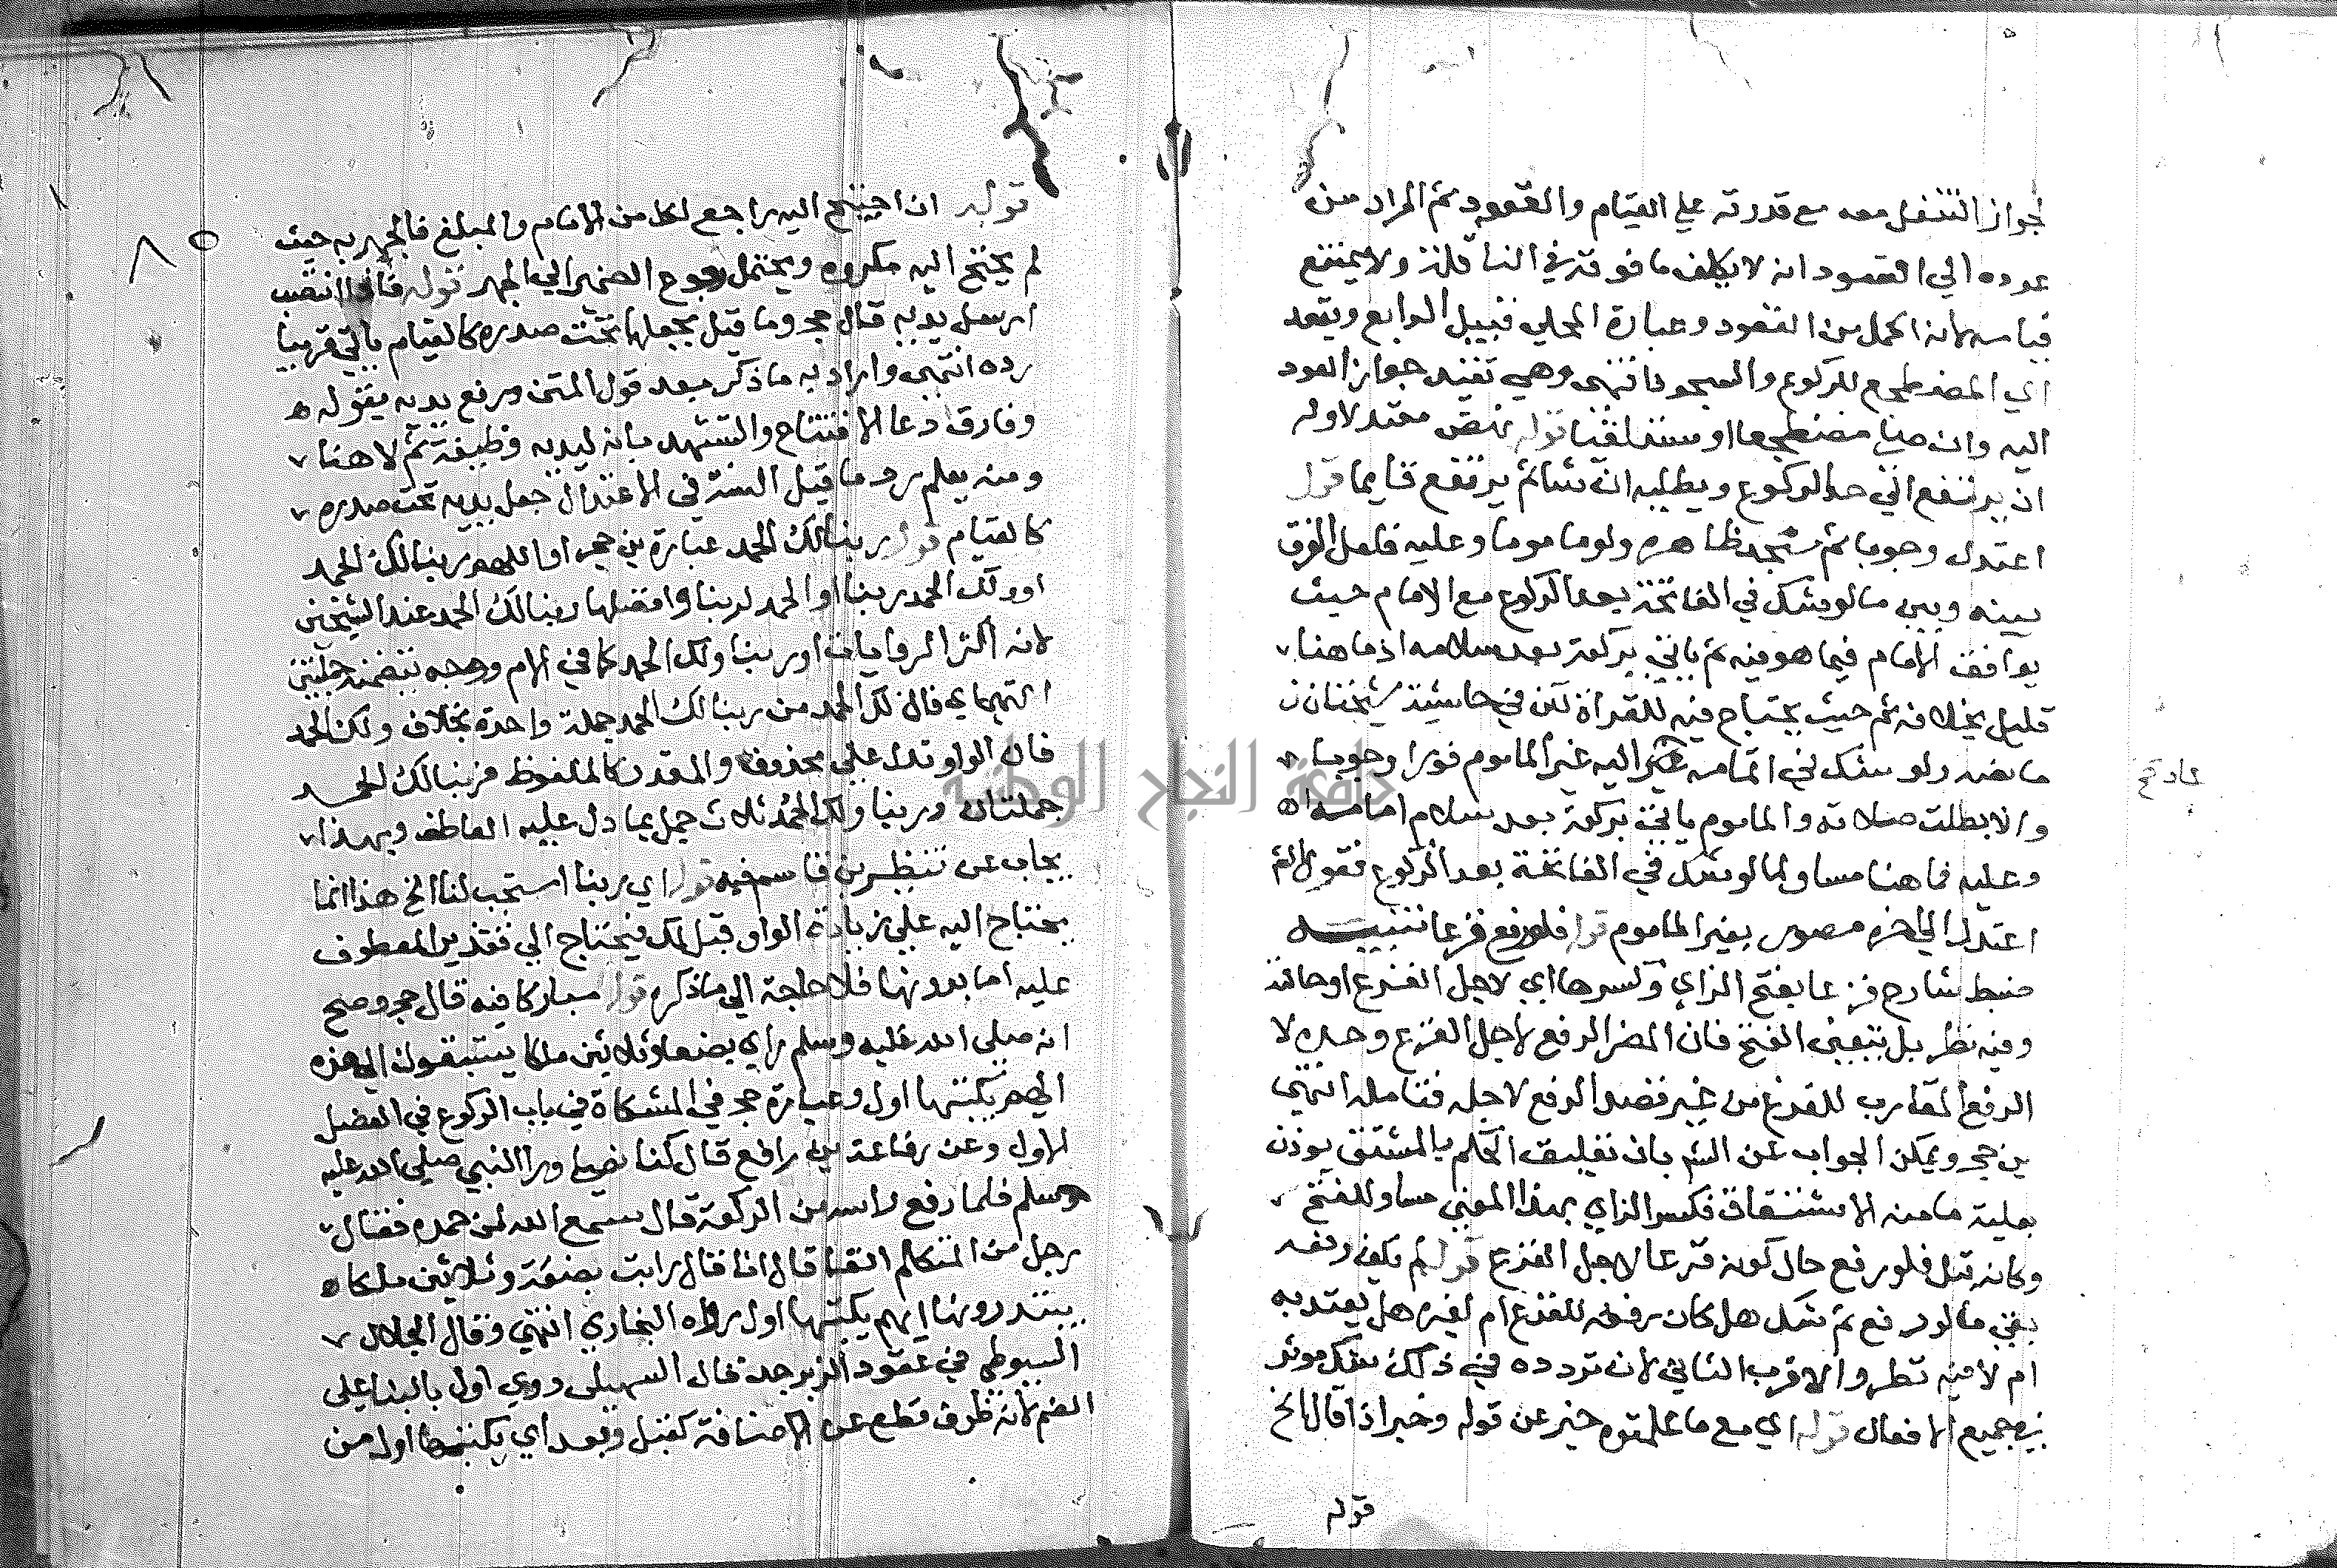 لجواز التنفل معه مع قدرته علي القيام والقعود ثم المراد من
عوده الي القعود انه لا يكلف ما فوقه في النافلة ولا يمتنع
قيامه لانه اكمل من القعود وعبارة المحلي قبيل الرابع ويقعد
اي المضطجع للركوع والسجود انتهى وهي تفيد جواز العود
اليه وان صلي مضطجعا او مستلقيا قوله
ان يرتفع الي حد الركوع ويطلبه ان شا ثم يرتفع قايما قوله
اعتدل وجوبا ثم سجد ظاهره ولو ماموما وعليه فلعل الفرق
بينه وبين ما لو شك في الفاتحة بعد الركوع مع الامام حيث
يوافق الامام فيما هو فيه ثم ياتي بركعة بعد سلامه اذ ما هنا
قليل بخلافه ثم حيث يحتاج فيه للقراة لكن في حاشية شيخنا ن
ما نصه ولو شك في اتمامه عاد اليه غير الماموم فورا وجوبا
والا بطلت صلاته والماموم ياتي بركعة بعد سلام امامه اه
وعليه فما هنا مساو لما لو شك في الفاتحة بعد الركوع فقول الش
اعتدل الي اخره مصور بغير الماموم قوله فلو رفع فزعا تنبيه
ضبط شارح فزعا بفتح الزاي وكسرها اي لاجل الفزع او حالته
وفيه نظر بل يتعين الفتح فان المضر الرفع لاجل الفزع وحده لا
الرفع المقارب للفزع من غير قصد الرفع لاجله فتامله انتهى
بن حجر ويمكن الجواب عن الش بان تعليق الحكم بالمشتق يوذن
بعلية ما منه الاشتقاق فكسر الزاي بهذا المعني مساو للفتح
وكانه قيل فلو رفع حال كونه فزعا لاجل الفزع قوله لم يكف رفعه
بقي ما لو رفع ثم شك هل كان رفعه للفزع ام لغيره هل يعتد به
ام لا فيه نظر والاقرب الثاني لان تردده في ذلك شك موثر
في جميع الافعال قوله اي مع ما علمتوه خبر عن قوله وخبر اذا قال الخ
قوله
عاد صح
٨٥
قوله ان احتيج اليه راجع لكل من الامام والمبلغ فالجهر به حيث
لم يحتج اليه مكروه ويحتمل رجوع الضمير الي الجهر قوله فاذا انتصب
ارسل يديه قال حجر وما قيل يجعلهما تحت صدره كالقيام ياتي قريبا
رده انتهى واراد به ما ذكر بعد قول المتن ورفع يديه بقوله
وفارق دعا الافتتاح والتشهد بان ليديه وظيفة ثم لا هنا
ومنه يعلم رد ما قيل السنة في الاعتدال جعل يديه تحت صدره
كالقيام قوله ربنا لك الحمد عبارة بن حجر او اللهم ربنا لك الحمد
او ولك الحمد ربنا او الحمد لربنا وافضلها ربنا لك الحمد عند الشيخين
لانه اكثر الروايات او ربنا ولك الحمد كما في الام ووجه بتضمنه جملتين
انتهى اي فان لك الحمد من ربنا لك الحمد جملة واحدة بخلاف ولك الحمد
فان الواو تدل علي محذوف والمقدر كالملفوظ فربنا لك الحمد
جملتان وربنا ولك الحمد ثلاث جمل بما دل عليه العاطف وبهذا
يجاب عن تنظير بن قاسم فيه قوله اي ربنا استجب لنا الخ هذا انما
يحتاج اليه علي زيادة الواو قبل لك فيحتاج الي تقدير المعطوف
عليه اما بدونها فلا حاجة الي ما ذكره قوله مباركا فيه قال حجر وصح
انه صلى الله عليه وسلم راي بضعا وثلاثين ملكا يستبقون الي هذه
ايهم يكتبها اول وعبارة حجر في المشكاة في باب الركوع في الفصل
الاول وعن رفاعة بن رافع قال كنا نصلي ورا النبي صلى الله عليه
وسلم فلما رفع راسه من الركعة قال سمع الله لمن حمده فقال
رجل من المتكلم انفا قال انا قال رايت بضعة وثلاثين ملكا
يبتدرونها ايهم يكتبها اول رواه البخاري انتهى وقال الجلال
السيوطي في عقود الزبرجد قال السهيلي روي اول بالبنا علي
الضم لانه ظرف قطع عن الاضافة كقبل وبعد اي يكتبها اول من